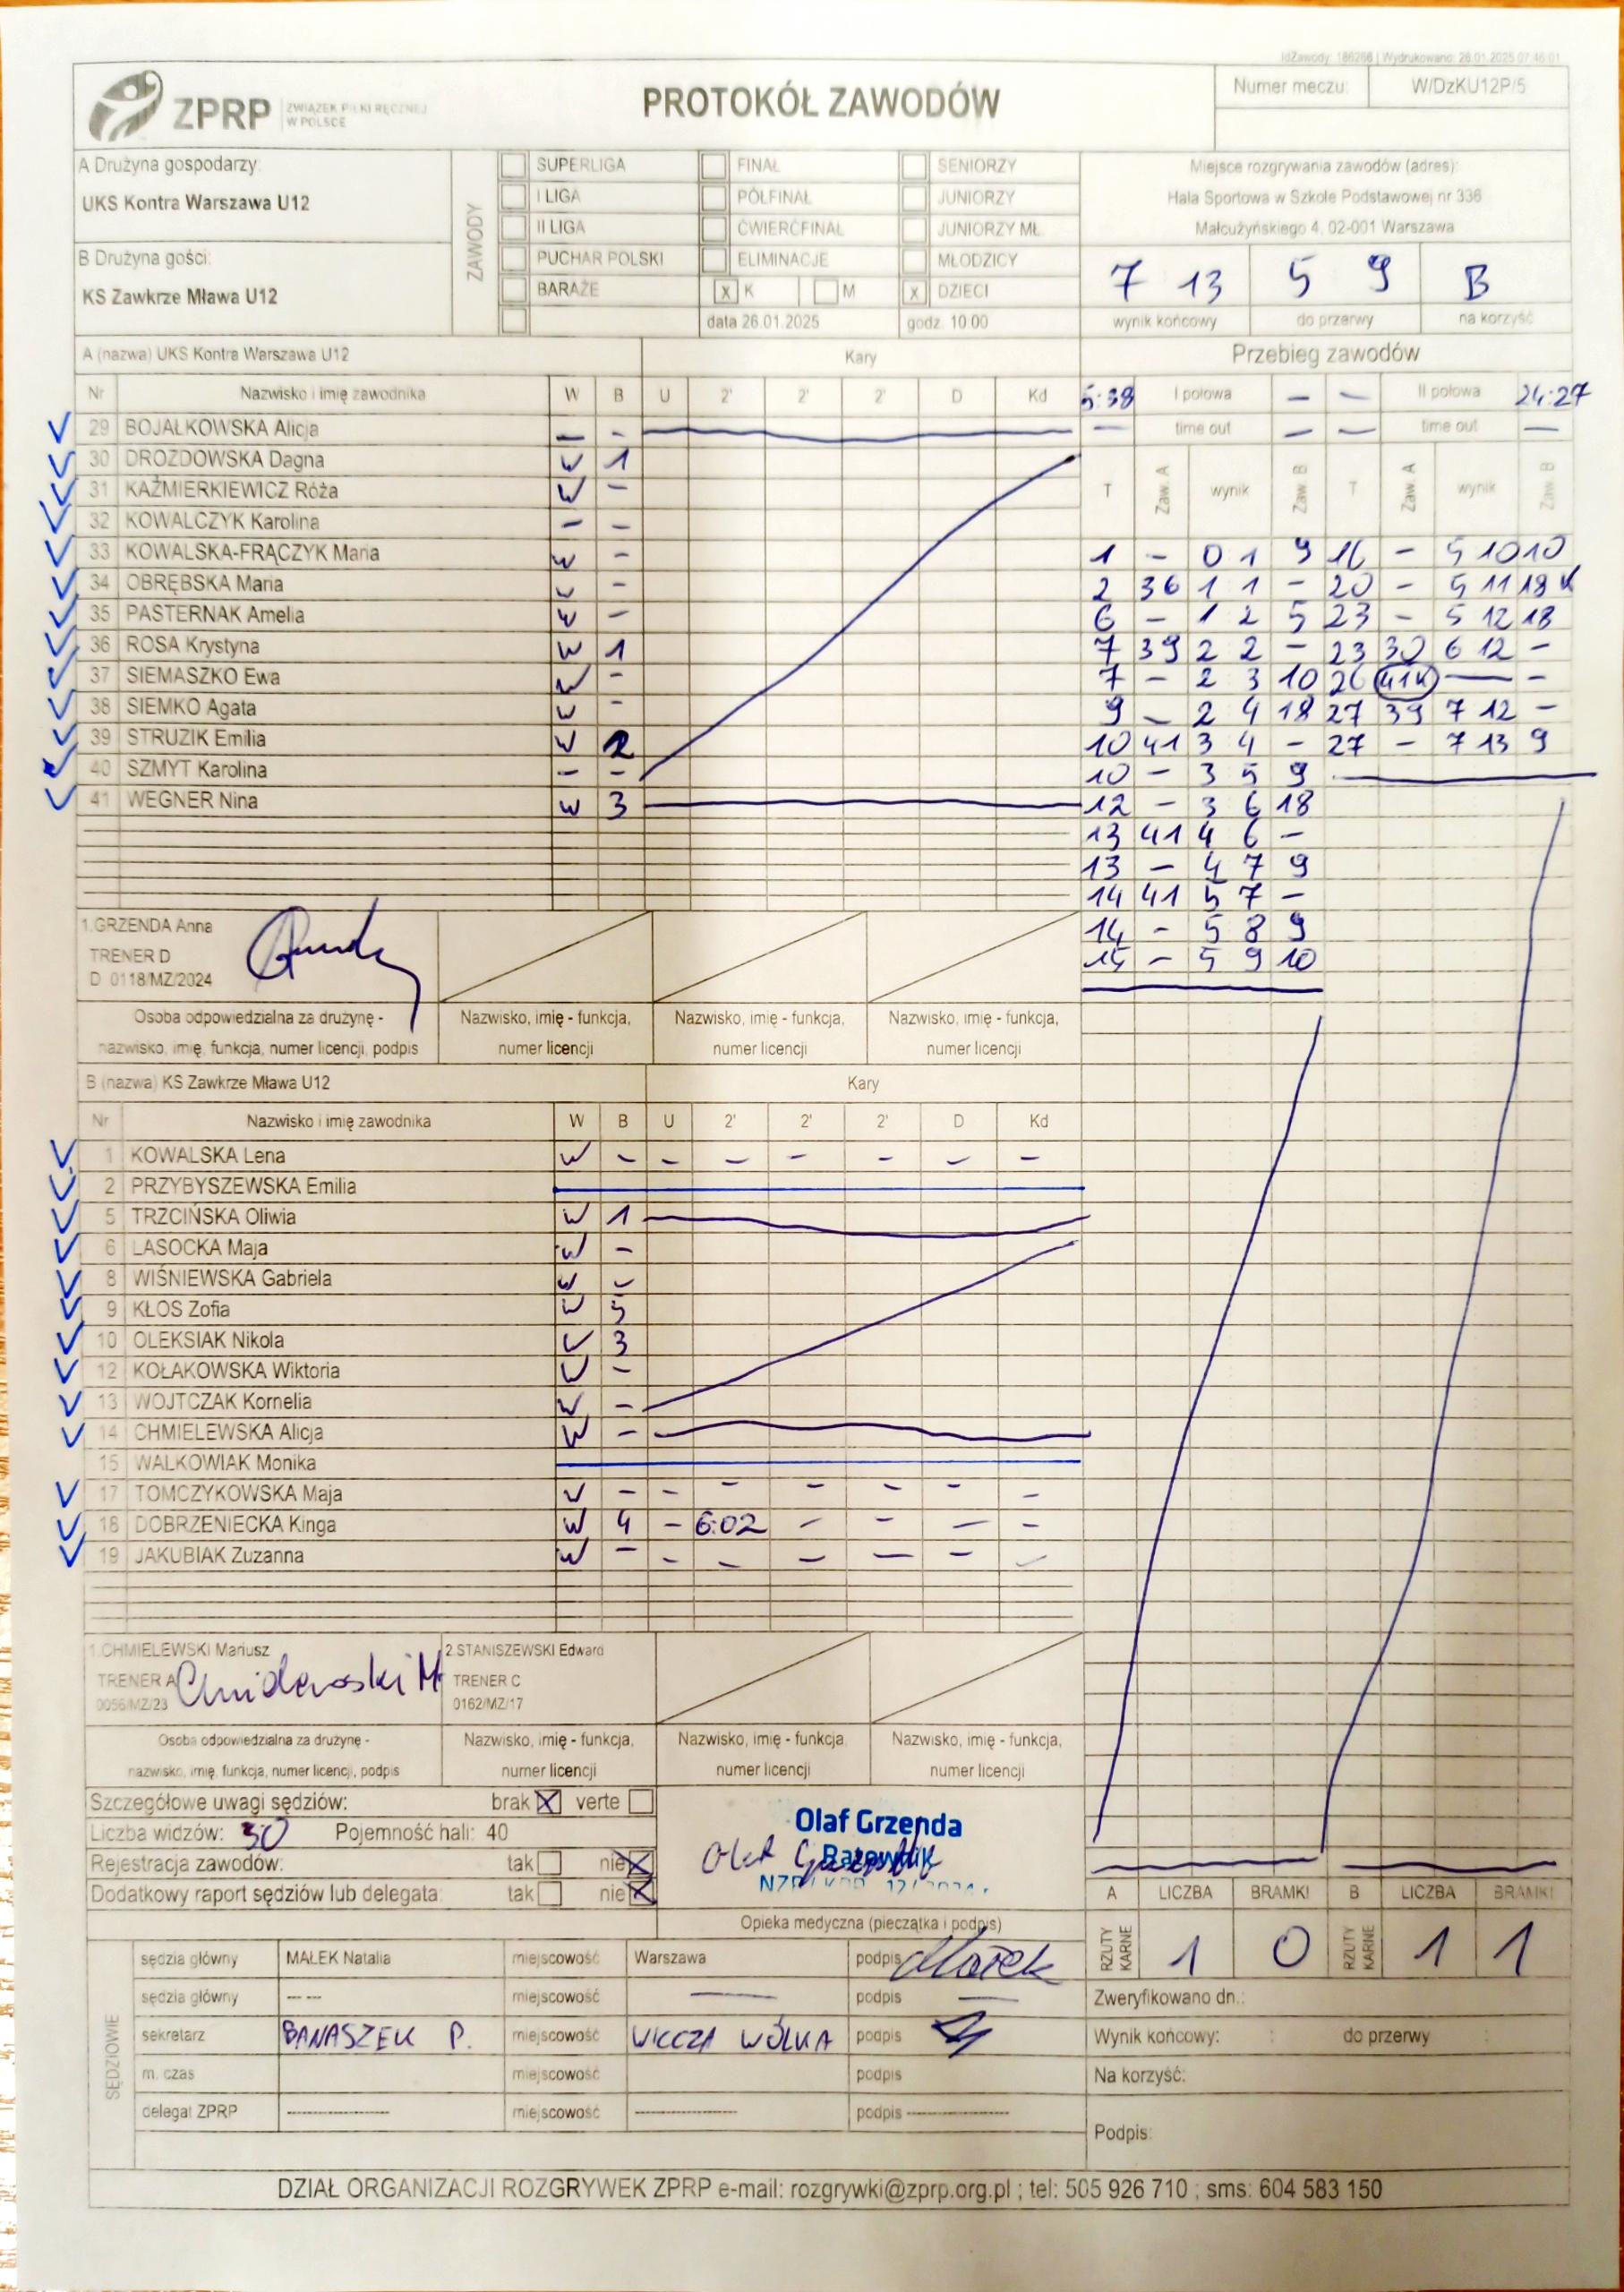 IdZawody: 186266 | Wydrukowano: 26.01.2025 07:46:01
ZPRP ZWIĄZEK PIŁKI RĘCZNEJ W POLSCE
PROTOKÓŁ ZAWODÓW
Numer meczu: W/DzKU12P/5
A Drużyna gospodarzy:
UKS Kontra Warszawa U12
B Drużyna gości:
KS Zawkrze Mława U12
ZAWODY
SUPERLIGA FINAŁ SENIORZY
I LIGA PÓŁFINAŁ JUNIORZY
II LIGA ĆWIERĆFINAŁ JUNIORZY MŁ.
PUCHAR POLSKI ELIMINACJE MŁODZICY
BARAŻE x K M x DZIECI
data 26.01.2025 godz. 10:00
Miejsce rozgrywania zawodów (adres):
Hala Sportowa w Szkole Podstawowej nr 336
Małcużyńskiego 4, 02-001 Warszawa
7 13 5 9 B
wynik końcowy do przerwy na korzyść
A (nazwa) UKS Kontra Warszawa U12 Kary
Nr Nazwisko i imię zawodnika W B U 2' 2' 2' D Kd
29 BOJAŁKOWSKA Alicja — -
30 DROZDOWSKA Dagna W 1
31 KAŹMIERKIEWICZ Róża W -
32 KOWALCZYK Karolina - -
33 KOWALSKA-FRĄCZYK Maria W -
34 OBRĘBSKA Maria W -
35 PASTERNAK Amelia W -
36 ROSA Krystyna W 1
37 SIEMASZKO Ewa W -
38 SIEMKO Agata W -
39 STRUZIK Emilia W 2
40 SZMYT Karolina - -
41 WEGNER Nina W 3
1.GRZENDA Anna
TRENER D
D 0118/MZ/2024
Osoba odpowiedzialna za drużynę -
nazwisko, imię, funkcja, numer licencji, podpis
Nazwisko, imię - funkcja,
numer licencji
Nazwisko, imię - funkcja,
numer licencji
Nazwisko, imię - funkcja,
numer licencji
Przebieg zawodów
5:38 I połowa — — II połowa 24:27
— time out — — time out —
T Zaw. A wynik Zaw. B T Zaw. A wynik Zaw. B
1 - 0 1 9 16 - 5 10 10
2 36 1 1 - 20 - 5 11 18 K
6 - 1 2 5 23 - 5 12 18
7 39 2 2 - 23 30 6 12 -
7 - 2 3 10 26 41K — -
9 - 2 4 18 27 39 7 12 -
10 41 3 4 - 27 - 7 13 9
10 - 3 5 9
12 - 3 6 18
13 41 4 6 -
13 - 4 7 9
14 41 5 7 -
14 - 5 8 9
15 - 5 9 10
B (nazwa) KS Zawkrze Mława U12 Kary
Nr Nazwisko i imię zawodnika W B U 2' 2' 2' D Kd
1 KOWALSKA Lena W - - - - - - -
2 PRZYBYSZEWSKA Emilia
5 TRZCIŃSKA Oliwia W 1
6 LASOCKA Maja W -
8 WIŚNIEWSKA Gabriela W -
9 KŁOS Zofia W 5
10 OLEKSIAK Nikola W 3
12 KOŁAKOWSKA Wiktoria W -
13 WOJTCZAK Kornelia W -
14 CHMIELEWSKA Alicja W -
15 WALKOWIAK Monika
17 TOMCZYKOWSKA Maja W - - - - - - -
18 DOBRZENIECKA Kinga W 4 - 6:02 - - - -
19 JAKUBIAK Zuzanna W - - - - - - -
1.CHMIELEWSKI Mariusz
TRENER A Chmielewski M
0056/MZ/23
2.STANISZEWSKI Edward
TRENER C
0162/MZ/17
Osoba odpowiedzialna za drużynę -
nazwisko, imię, funkcja, numer licencji, podpis
Nazwisko, imię - funkcja,
numer licencji
Nazwisko, imię - funkcja,
numer licencji
Nazwisko, imię - funkcja,
numer licencji
Szczegółowe uwagi sędziów: brak X verte
Liczba widzów: 30 Pojemność hali: 40
Rejestracja zawodów: tak nie X
Dodatkowy raport sędziów lub delegata: tak nie X
Olaf Grzenda
Ratownik
Opieka medyczna (pieczątka i podpis)
A LICZBA BRAMKI B LICZBA BRAMKI
RZUTY KARNE 1 0 RZUTY KARNE 1 1
SĘDZIOWIE
sędzia główny MAŁEK Natalia miejscowość Warszawa podpis Małek
sędzia główny -- -- miejscowość — podpis —
sekretarz BANASZEK P. miejscowość WILCZA WÓLKA podpis
m. czas miejscowość podpis
delegat ZPRP ---------------- miejscowość ---------------- podpis ----------------
Zweryfikowano dn.:
Wynik końcowy: : do przerwy :
Na korzyść:
Podpis:
DZIAŁ ORGANIZACJI ROZGRYWEK ZPRP e-mail: rozgrywki@zprp.org.pl ; tel: 505 926 710 ; sms: 604 583 150